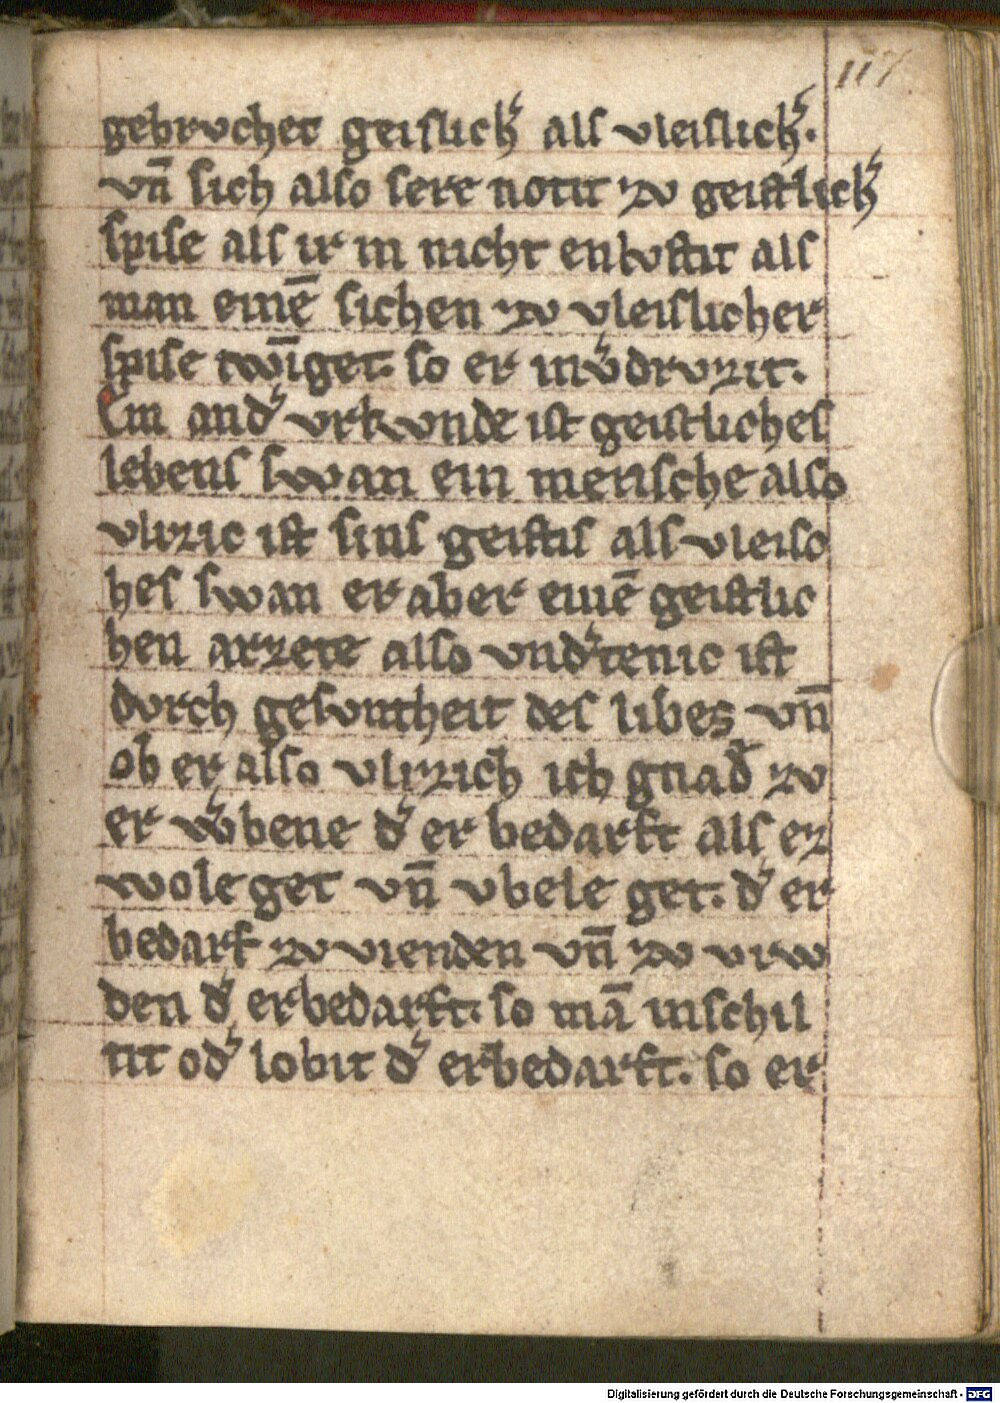 117
gebrvchet geislich̾ als vleislich̾.
vn̄ sich also sere notit zv geistlich̾
spise als ir in nicht enkostit als
man einē sichen zv vleislicher
spise twīget. so er in v̾drvzit.
Ein and̾ vrkvnde ist geistliches
lebens swan ein mensche also
vlizic ist sins geistis als vleisc
hes swan er aber einē geistlic
hen arzete also vnd̾tenic ist
dvrch gesvntheit des libes vn̄
ob er also vlizich ich gnad̾ zv
er w̾bene d̾ er bedarft als ez
wole get vn̄ vbele get. d̾ er
bedarf zv vienden vn̄ zv vrw
den d̾ er bedarft. so mā in schil
tit od̾ lobit d̾ er bedarft. so er
Digitalisierung gefördert durch die Deutsche Forschungsgemeinschaft - DFG